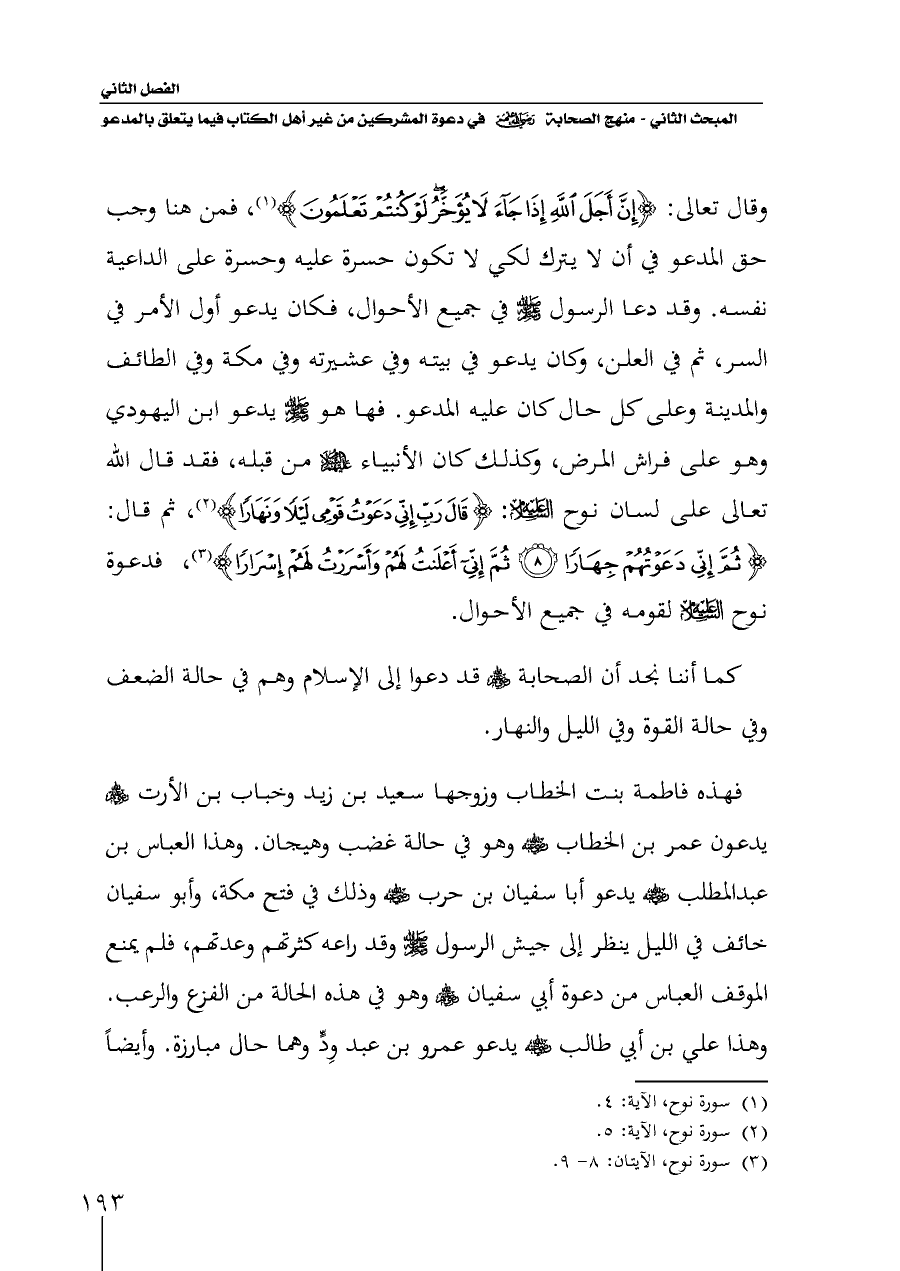 الفصل الثاني
المبحث الثاني - منهج الصحابة رضي الله عنهم في دعوة المشركين من غير أهل الكتاب فيما يتعلق بالمدعو
وقال تعالى: ﴿إِنَّ أَجَلَ ٱللَّهِ إِذَا جَآءَ لَا يُؤَخَّرُۖ لَوۡ كُنتُمۡ تَعۡلَمُونَ﴾(١)، فمن هنا وجب
حق المدعو في أن لا يترك لكي لا تكون حسرة عليه وحسرة على الداعية
نفسه. وقد دعا الرسول ﷺ في جميع الأحوال، فكان يدعو أول الأمر في
السر، ثم في العلن، وكان يدعو في بيته وفي عشيرته وفي مكة وفي الطائف
والمدينة وعلى كل حال كان عليه المدعو. فها هو ﷺ يدعو ابن اليهودي
وهو على فراش المرض، وكذلك كان الأنبياء عليهم السلام من قبله، فقد قال الله
تعالى على لسان نوح عليه السلام: ﴿قَالَ رَبِّ إِنِّي دَعَوۡتُ قَوۡمِي لَيۡلٗا وَنَهَارٗا﴾(٢)، ثم قال:
﴿ثُمَّ إِنِّي دَعَوۡتُهُمۡ جِهَارٗا ٨ ثُمَّ إِنِّيٓ أَعۡلَنتُ لَهُمۡ وَأَسۡرَرۡتُ لَهُمۡ إِسۡرَارٗا﴾(٣)، فدعوة
نوح عليه السلام لقومه في جميع الأحوال.
كما أننا نجد أن الصحابة رضي الله عنهم قد دعوا إلى الإسلام وهم في حالة الضعف
وفي حالة القوة وفي الليل والنهار.
فهذه فاطمة بنت الخطاب وزوجها سعيد بن زيد وخباب بن الأرت رضي الله عنهم
يدعون عمر بن الخطاب رضي الله عنه وهو في حالة غضب وهيجان. وهذا العباس بن
عبدالمطلب رضي الله عنه يدعو أبا سفيان بن حرب رضي الله عنه وذلك في فتح مكة، وأبو سفيان
خائف في الليل ينظر إلى جيش الرسول ﷺ وقد راعه كثرتهم وعدتهم، فلم يمنع
الموقف العباس من دعوة أبي سفيان رضي الله عنه وهو في هذه الحالة من الفزع والرعب.
وهذا علي بن أبي طالب رضي الله عنه يدعو عمرو بن عبد وِدٍّ وهما حال مبارزة. وأيضاً
(١) سورة نوح، الآية: ٤.
(٢) سورة نوح، الآية: ٥.
(٣) سورة نوح، الآيتان: ٨- ٩.
١٩٣